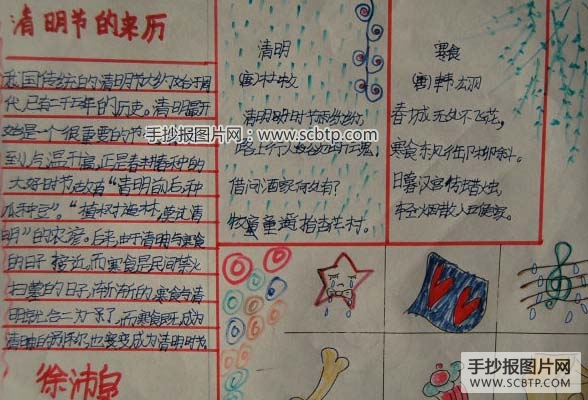 清明节的来历
我国传统的清明节大约始于周
代,已有二千五百年的历史。清明最开
始是一个很重要的节
到,气温升高,正是春耕春种的
大好时节,故有“清明前后,种
瓜种豆”。“植树造林,莫过清
明”的农谚。后来,由于清明与寒食
的日子接近,而寒食是民间禁火
扫墓的日子,渐渐的,寒食与清
明就合二为一了,而寒食既成为
清明的别称,也变成为清明时节
徐沛
清明
(唐)杜牧
清明时节雨纷纷,
路上行人
借问酒家何处有?
牧童遥指杏花村。
寒食
(唐)韩
春城无处不飞花,
寒食东风御柳斜。
日暮汉宫传蜡烛,
轻烟散入五侯家。
手抄报图片网:www.scbtp.com
手抄报图片网
WWW.SCBTP.COM